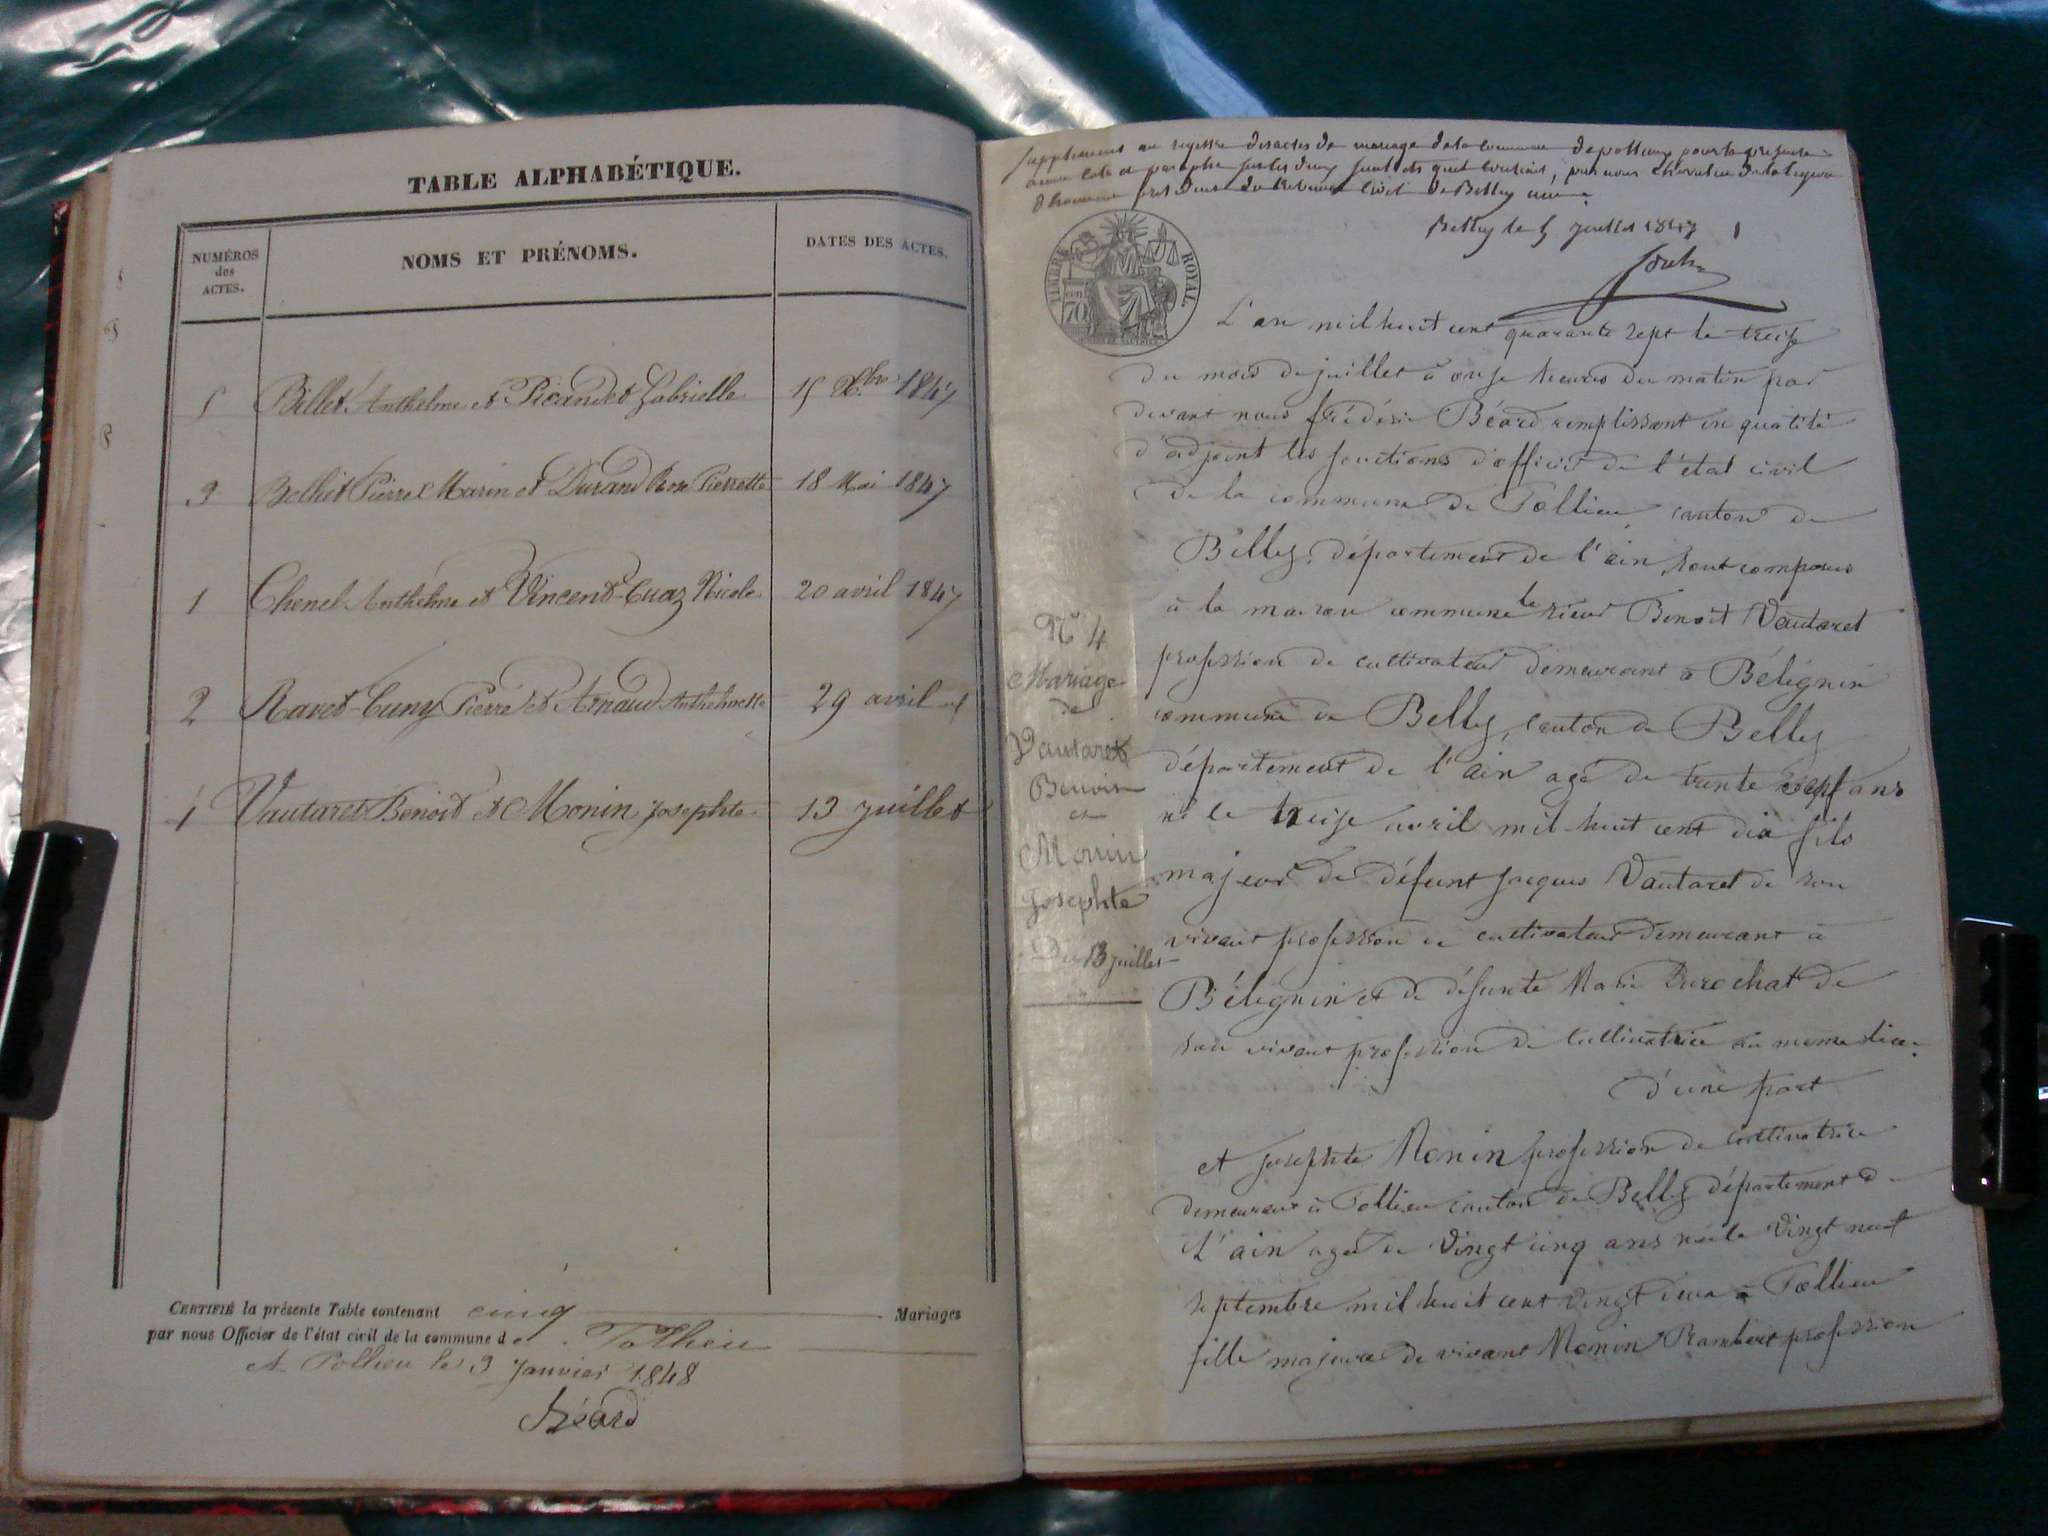 TABLE ALPHABÉTIQUE.
NUMÉROS
des
ACTES.
NOMS ET PRÉNOMS.
DATES DES ACTES.
5 Billet Anthelme et Picandet Gabrielle 15 Xbre 1847
3 Belliet Pierre Marin et Durand Rose Pierrette 18 Mai 1847
1 Chenel Anthelme et Vincent-Cuaz Nicole 20 avril 1847
2 Ravet-Cuny Pierre et Arnaud Anthelmette 29 avril
4 Vautaret Benoit et Monin Josephte 13 juillet
CERTIFIÉ la présente Table contenant cinq Mariages
par nous Officier de l'état civil de la commune de Pollieu
A Pollieu le 9 Janvier 1848
Béard
Supplement au registre des actes de mariage de la commune de pollieu pour la presente
année coté et paraphé sur les deux feuillets qu'il contient, par nous chevalier de la legion
d'honneur president du tribunal civil de Belley
Belley le 5 juillet 1847 1
TIMBRE ROYAL
cen. 70
L'an mil huit cent quarante sept le treize
du mois de juillet à onze heures du matin par
devant nous frédéric Béard remplissant en qualité
d'adjoint les fonctions d'officier de l'état civil
de la commune de Pollieu, canton de
Belley, département de l'ain sont comparus
à la maison commune le sieur Benoit Vautaret
profession de cultivateur demeurant à Bélignin
commune de Belley, canton de Belley
département de l'ain agé de trente sept ans
né le treize avril mil-huit cent dix fils
majeur de défunt Jacques Vautaret de son
vivant profession de cultivateur demeurant à
Bélignin et de défunte Marie Durochat de
son vivant profession de cultivatrice au meme lieu.
d'une part
et Josephte Monin profession de cultivatrice
demeurant à Pollieu canton de Belley département de
L'ain agée de vingt cinq ans née le vingt neuf
septembre mil huit cent vingt deux à Pollieu
fille majeure de vivant Monin Rambert profession
N° 4
Mariage
de
Vautaret
Benoit
et
Monin
Josephte
Du 13 juillet